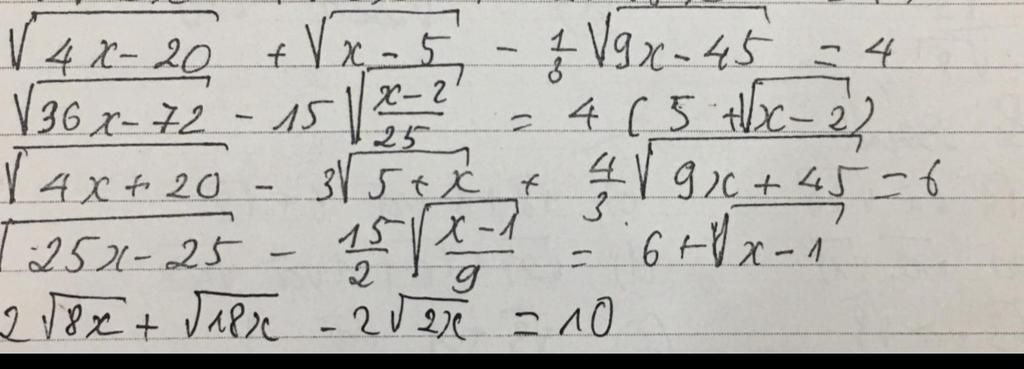 √(4x-20) + √(x-5) - 1/3 √(9x-45) = 4
√(36x-72) - 15 √((x-2)/25) = 4 (5 + √(x-2))
√(4x+20) - 3√(5+x) + 4/3 √(9x+45) = 6
√(25x-25) - 15/2 √((x-1)/9) = 6 + √(x-1)
2 √(8x) + √(18x) - 2√(2x) = 10